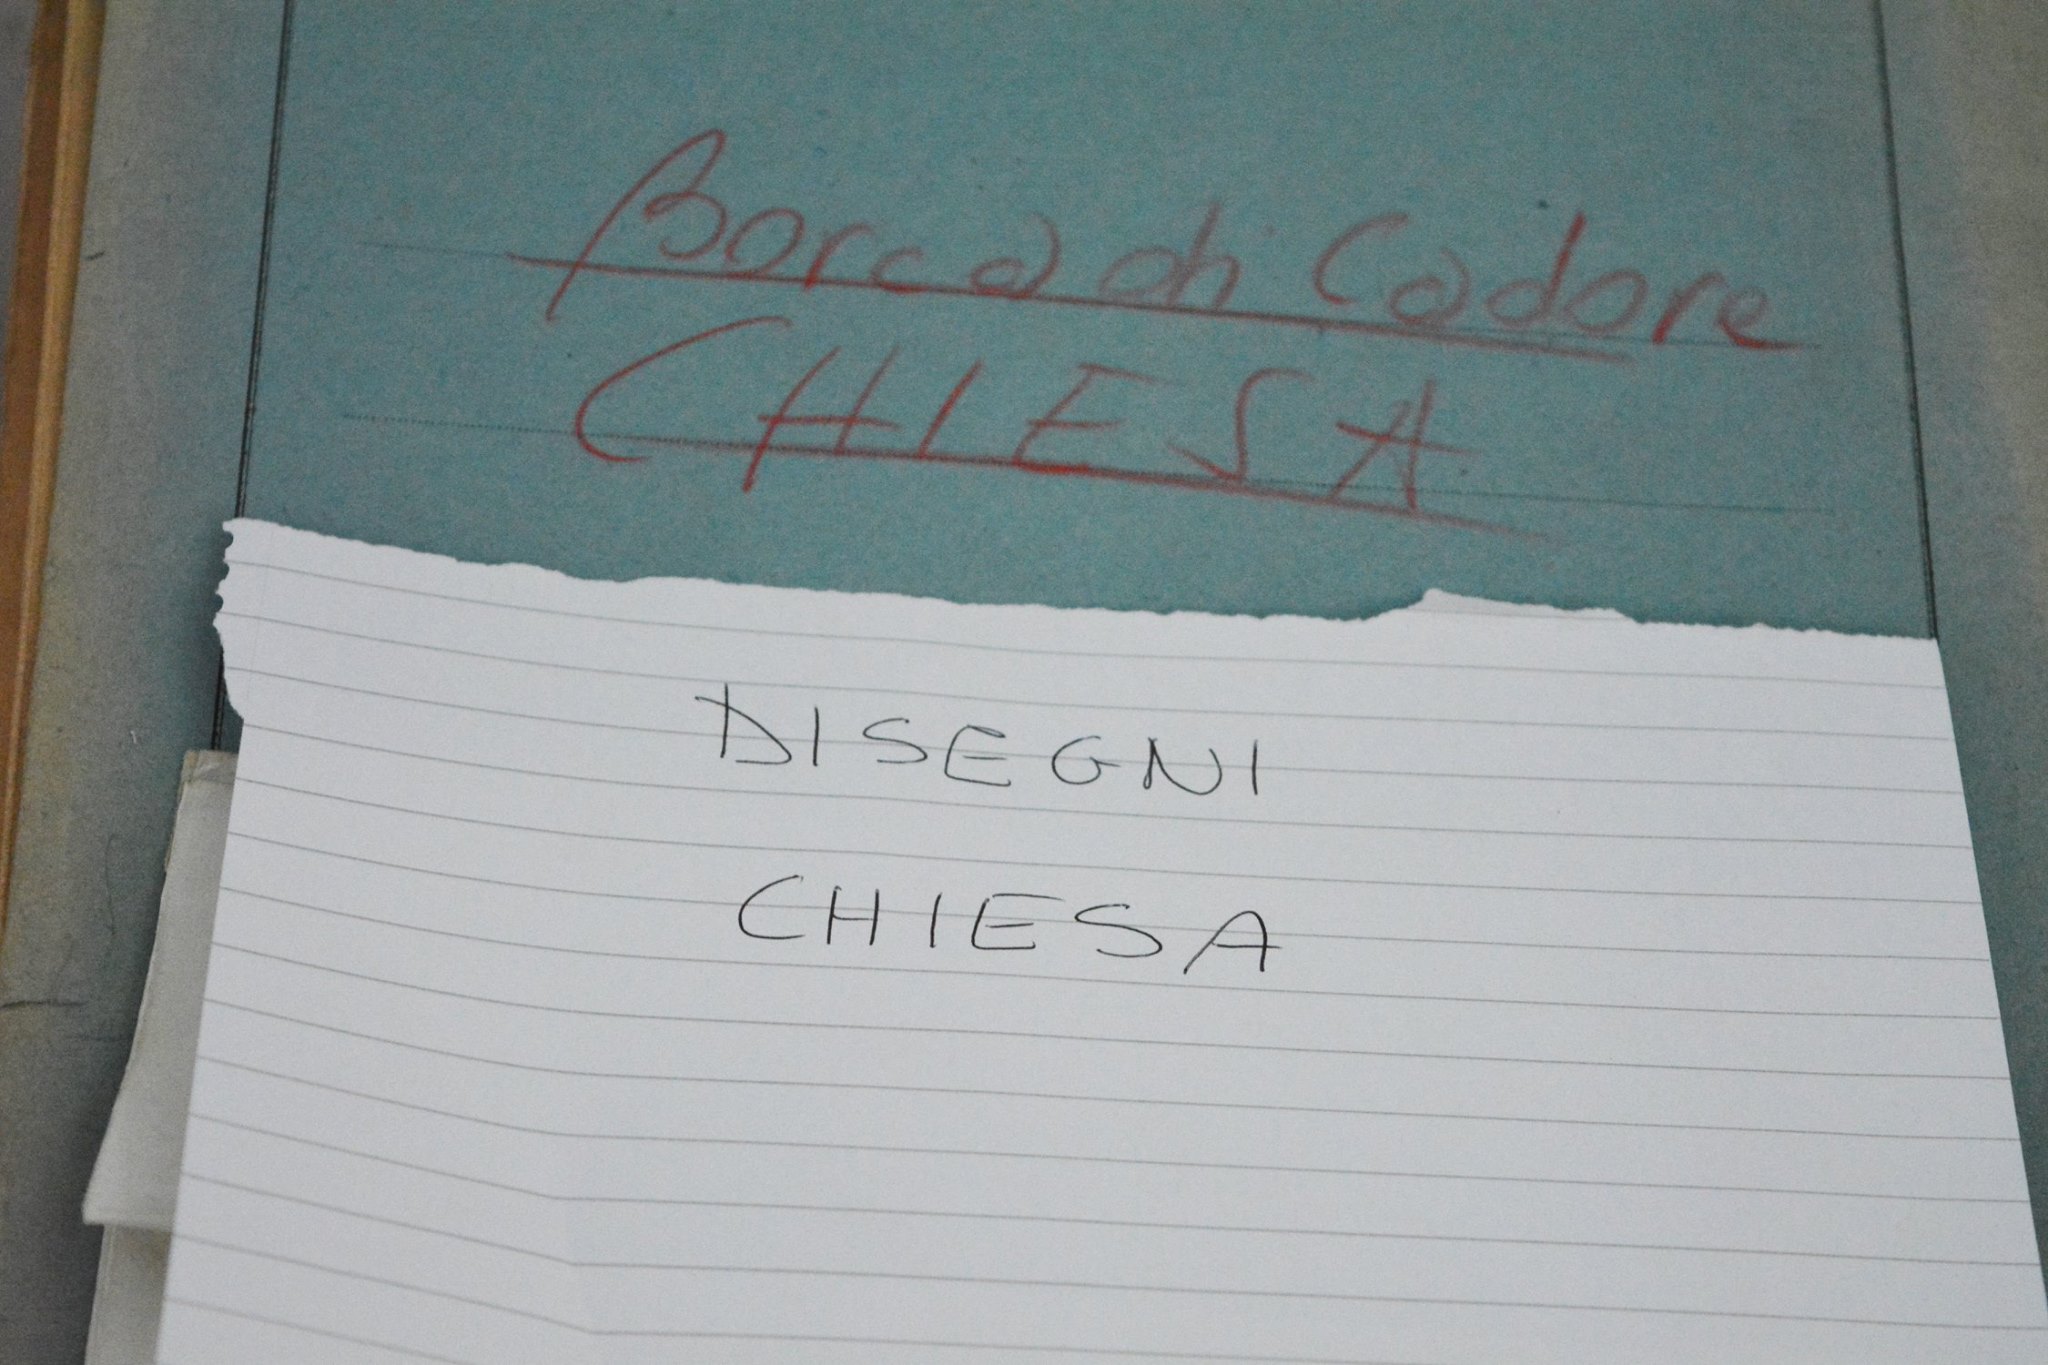 Borca di Cadore
CHIESA
DISEGNI
CHIESA